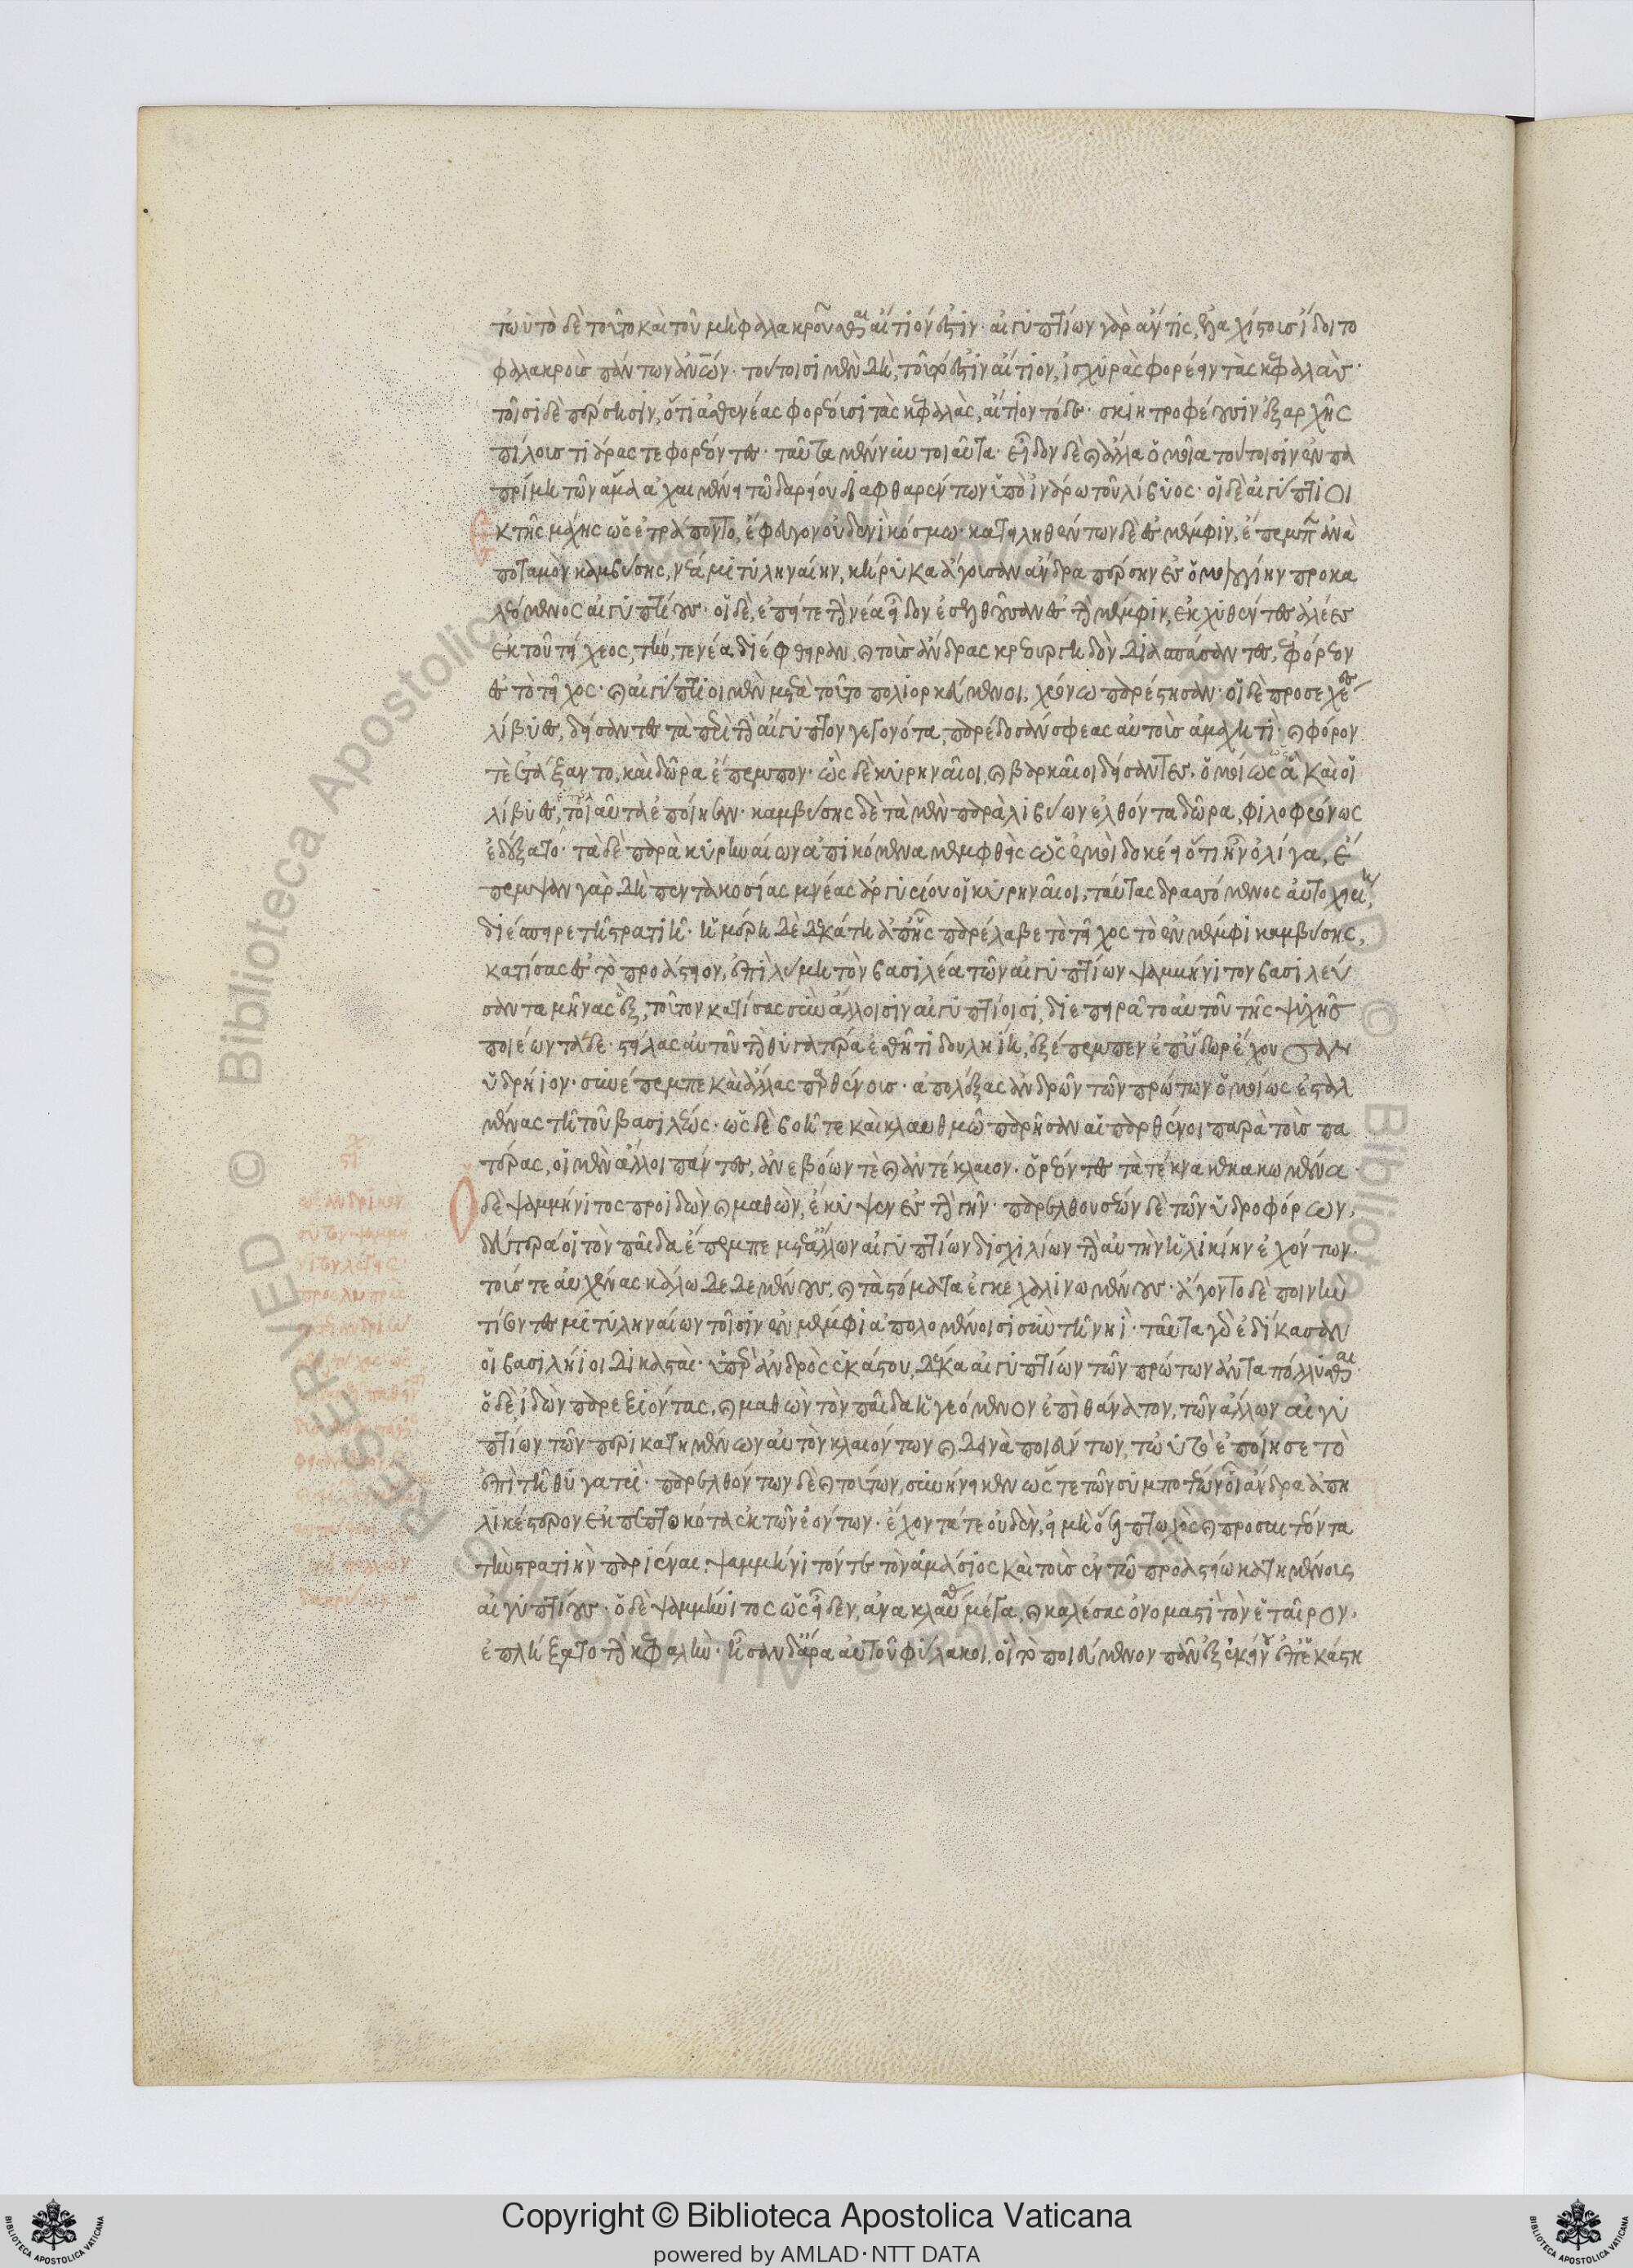 τὠυτὸ δὲ τοῦτο καὶ τοῦ μὴ φαλακροῦσθαι αἴτιόν ἐστιν· αἰγυπτίων γὰρ ἄν τις, ἐλαχίστους ἴδοιτο
φαλακροὺς πάντων ἀνθρώπων· τούτοισι μὲν δὴ, τοῦτό ἐστιν αἴτιον, ἰσχυρὰς φορέειν τὰς κεφαλάς·
τοῖσι δὲ πέρσησιν, ὅτι ἀσθενέας φορέουσι τὰς κεφαλὰς, αἴτιον τόδε· σκιητροφέουσιν ἐξ αρχῆς
πίλους τιάρας τε φορέοντες· ταῦτα μέν νυν τοιαῦτα· εἶδον δὲ καὶ ἄλλα ὅμοια τούτοισιν ἐν πα
πρίμη τῶν ἅμα ἀχαιμένει τῶ δαρείου διαφθαρέντων ὑπὸ ἰνάρω τοῦ λίβυος· οἱ δὲ αἰγύπτιοι
ἐκ τῆς μάχης ὡς ἐτράποντο, ἔφευγον οὐδενὶ κόσμω· κατειληθέντων δὲ ἐς μέμφιν, ἔπεμπε ἀνὰ
ποταμὸν καμβύσης, νέα μιτυληναίην, κήρυκα ἄγουσαν ἄνδρα πέρσην ἐς ὁμολογίην προκα
λεόμενος αἰγυπτίους· οἱ δὲ, ἐπείτε τὴν νέα εἶδον ἐσελθοῦσαν ἐς τὴν μέμφιν, ἐκχυθέντες ἁλέες
ἐκ τοῦ τείχεος, τήν, τε νέα διέφθειραν, καὶ τοὺς ἄνδρας κρεουργηδὸν διασπάσαντες, ἐφόρεον
ἐς τὸ τεῖχος· καὶ αἰγύπτιοι μὲν μετὰ τοῦτο πολιορκεύμενοι, χρόνω παρέστησαν· οἱ δὲ προσεχέες
λίβυες, δείσαντες τὰ περὶ τὴν αἴγυπτον γεγονότα, παρέδοσάν σφεας αὐτοὺς ἀμαχητί· καὶ φόρον
τε ἐτάξαντο, καὶ δῶρα ἔπεμπον· ὣς δὲ κυρηναῖοι, καὶ βαρκαῖοι δείσαντες. ὁμοίως ἃ καὶ οἱ
λίβυες, τοιαῦτα ἐποίησαν· καμβύσης δὲ τὰ μὲν παρὰ λιβύων ἐλθόντα δῶρα, φιλοφρόνως
ἐδέξατο· τὰ δὲ παρὰ κυρηναίων ἀπικόμενα μεμφθεὶς ὡς ἐμοὶ δοκέει ὅτι ἦν ὀλίγα, ἔ
πεμψαν γὰρ δὴ πεντακοσίας μνέας ἀργυρίου οἱ κυρηναῖοι, ταύτας δρασσόμενος αὐτοχειρίη,
διέσπειρε τῆ στρατιῆ· ἡμέρη δὲ δεκάτη ἀπ' ἧς παρέλαβε τὸ τεῖχος τὸ ἐν μέμφι καμβύσης,
κατίσας ἐς τὸ προάστειον, ἐπὶ λύμη τὸν βασιλέα τῶν αἰγυπτίων ψαμμήνιτον βασιλεύ
σαντα μῆνας ἓξ, τοῦτον κατίσας σὺν ἄλλοισιν αἰγυπτίοισι, διεπειρᾶτο αὐτοῦ τῆς ψυχῆς
ποιέων τάδε· στείλας αὐτοῦ τὴν θυγατέρα ἐσθῆτι δουληίη, ἐξέπεμπεν ἐπ' ὕδωρ ἔχουσαν
ὑδρήιον· συνέπεμπε καὶ ἄλλας παρθένους· ἀπολέξας ἀνδρῶν τῶν πρώτων ὁμοίως ἐσταλ
μένας τῆ τοῦ βασιλέως· ὡς δὲ βοῆ τε καὶ κλαυθμῶ παρῆσαν αἱ παρθένοι παρὰ τοὺς πα
τέρας, οἱ μὲν ἄλλοι πάντες, ἀνεβόων τε καὶ ἀντέκλαιον· ὁρέοντες τὰ τέκνα κεκακωμένα·
Ὁ δὲ ψαμμήνιτος προιδὼν καὶ μαθὼν, ἔκυψεν ἐς τὴν γῆν· παρελθουσέων δὲ τῶν ὑδροφόρων,
δεύτερά οἱ τὸν παῖδα ἔπεμπε μετ' ἄλλων αἰγυπτίων δισχιλίων τὴν αὐτὴν ἡλικίην ἐχόντων.
τούς τε αὐχένας κάλω δεδεμένους, καὶ τὰ στόματα ἐγκεχαλινωμένους· ἄγοντο δὲ ποινὴν
τίσοντες μιτυληναίων τοῖσιν ἐν μέμφι ἀπολομένοισι σὺν τῆ νηί· ταῦτα γὰρ ἐδίκασαν
οἱ βασιλήιοι δικασταὶ· ὑπὲρ ἀνδρὸς ἑκάστου, δέκα αἰγυπτίων τῶν πρώτων ἀνταπόλλυσθαι·
ὁ δὲ ἰδὼν παρεξιόντας, καὶ μαθὼν τὸν παῖδα ἡγεόμενον ἐπὶ θάνατον, τῶν ἄλλων αἰγυ
πτίων τῶν περικατημένων αὐτὸν κλαιόντων καὶ δεινὰ ποιεύντων, τὠυτὸ ἐποίησε τὸ
ἐπὶ τῆ θυγατρὶ· παρελθόντων δὲ καὶ τούτων, συνήνεικεν ὥστε τῶν συμποτέων οἱ ἄνδρα ἀπη
λικέστερον ἐκπεπτωκότα ἐκ τῶν ἐόντων· ἔχοντά τε οὐδὲν, εἰ μὴ ὅσα πτωχὸς καὶ προσαιτέοντα
τὴν στρατιὴν παριέναι. ψαμμήνιτόν τε τὸν ἀμάσιος καὶ τοὺς ἐν τῶ προαστείω κατημένους
αἰγυπτίους· ὁ δὲ ψαμμήνιτος ὡς εἶδεν, ἀνακλαύσας μέγα, καὶ καλέσας ὀνομαστὶ τὸν ἑταῖρον,
ἐπλήξατο τὴν κεφαλὴν· ἦσαν δ' ἄρα αὐτοῦ φύλακοι, οἳ τὸ ποιεύμενον πᾶν ἐξ ἐκείνου ἐπ' ἑκάστη
Copyright © Biblioteca Apostolica Vaticana
powered by AMLAD·NTT DATA